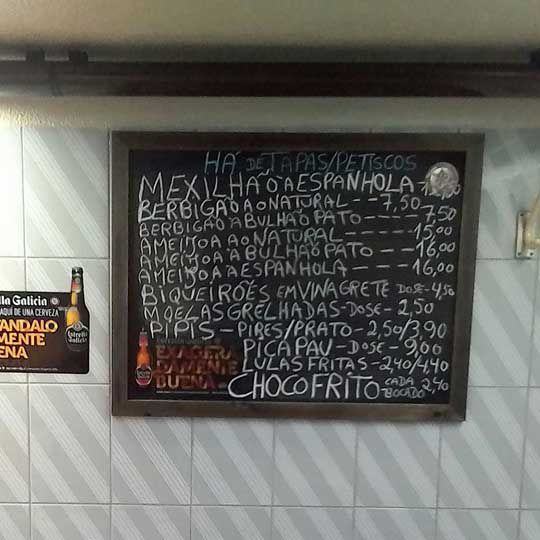 HÁ DE TAPAS/PETISCOS
MEXILHÃO A ESPANHOLA
BERBIGÃO AO NATURAL -- 7,50
BERBIGÃO A BULHÃO PATO --- 7,50
AMEIJOA AO NATURAL --- 15,00
AMEIJOA À BULHÃO PATO --- 16,00
AMEIJOA À ESPANHOLA -- 16,00
BIQUEIRÕES EM VINAGRETE DOSE- 4,50
MOELAS GRELHADAS-DOSE- 2,50
PIPIS - PIRES/PRATO- 2,50/3,90
PICA PAU- DOSE- 9,00
LULAS FRITAS- 2,40/4,40
CHOCO FRITO CADA BOCADO 2,40
EXAGERA
DAMENTE
BUENA
lla Galicia
AQUÍ DE UNA CERVEZA
ANDALO
MENTE
ENA
Estrella
Galicia